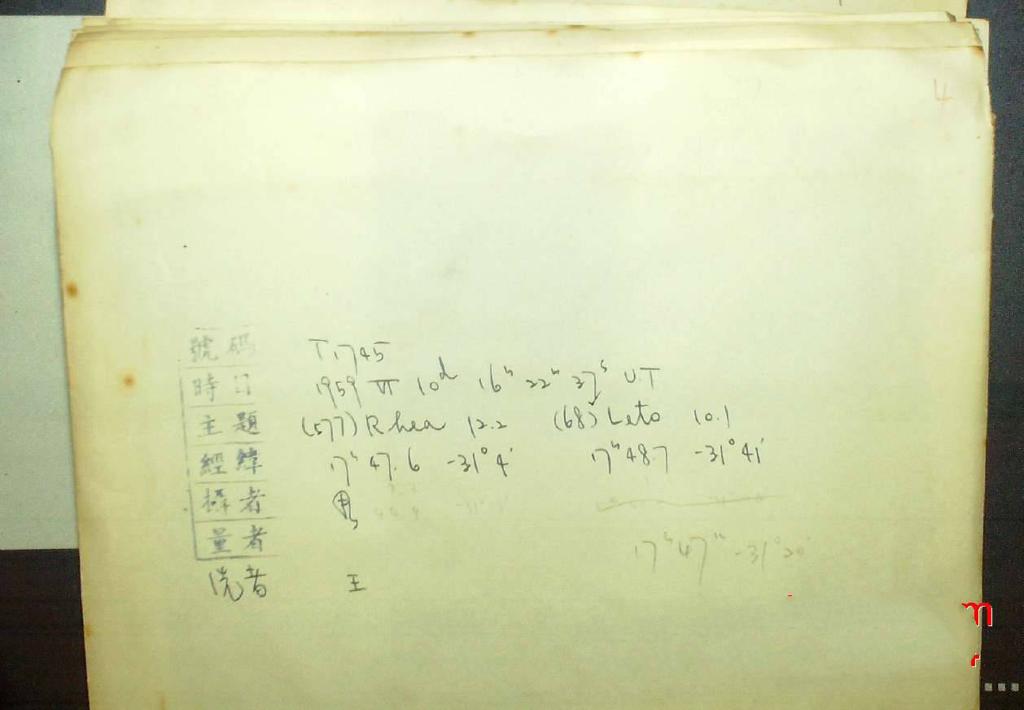 4
號碼 T1745
時日 1959 VI 10d 16h 22m 37s UT
主題 (577) Rhea 12.2 (68) Leto 10.1
經緯 17h 47.6 -31° 4' 17h 48.7 -31° 41'
攝者
量者
17h 47m -31° 20'
洗者 王
m